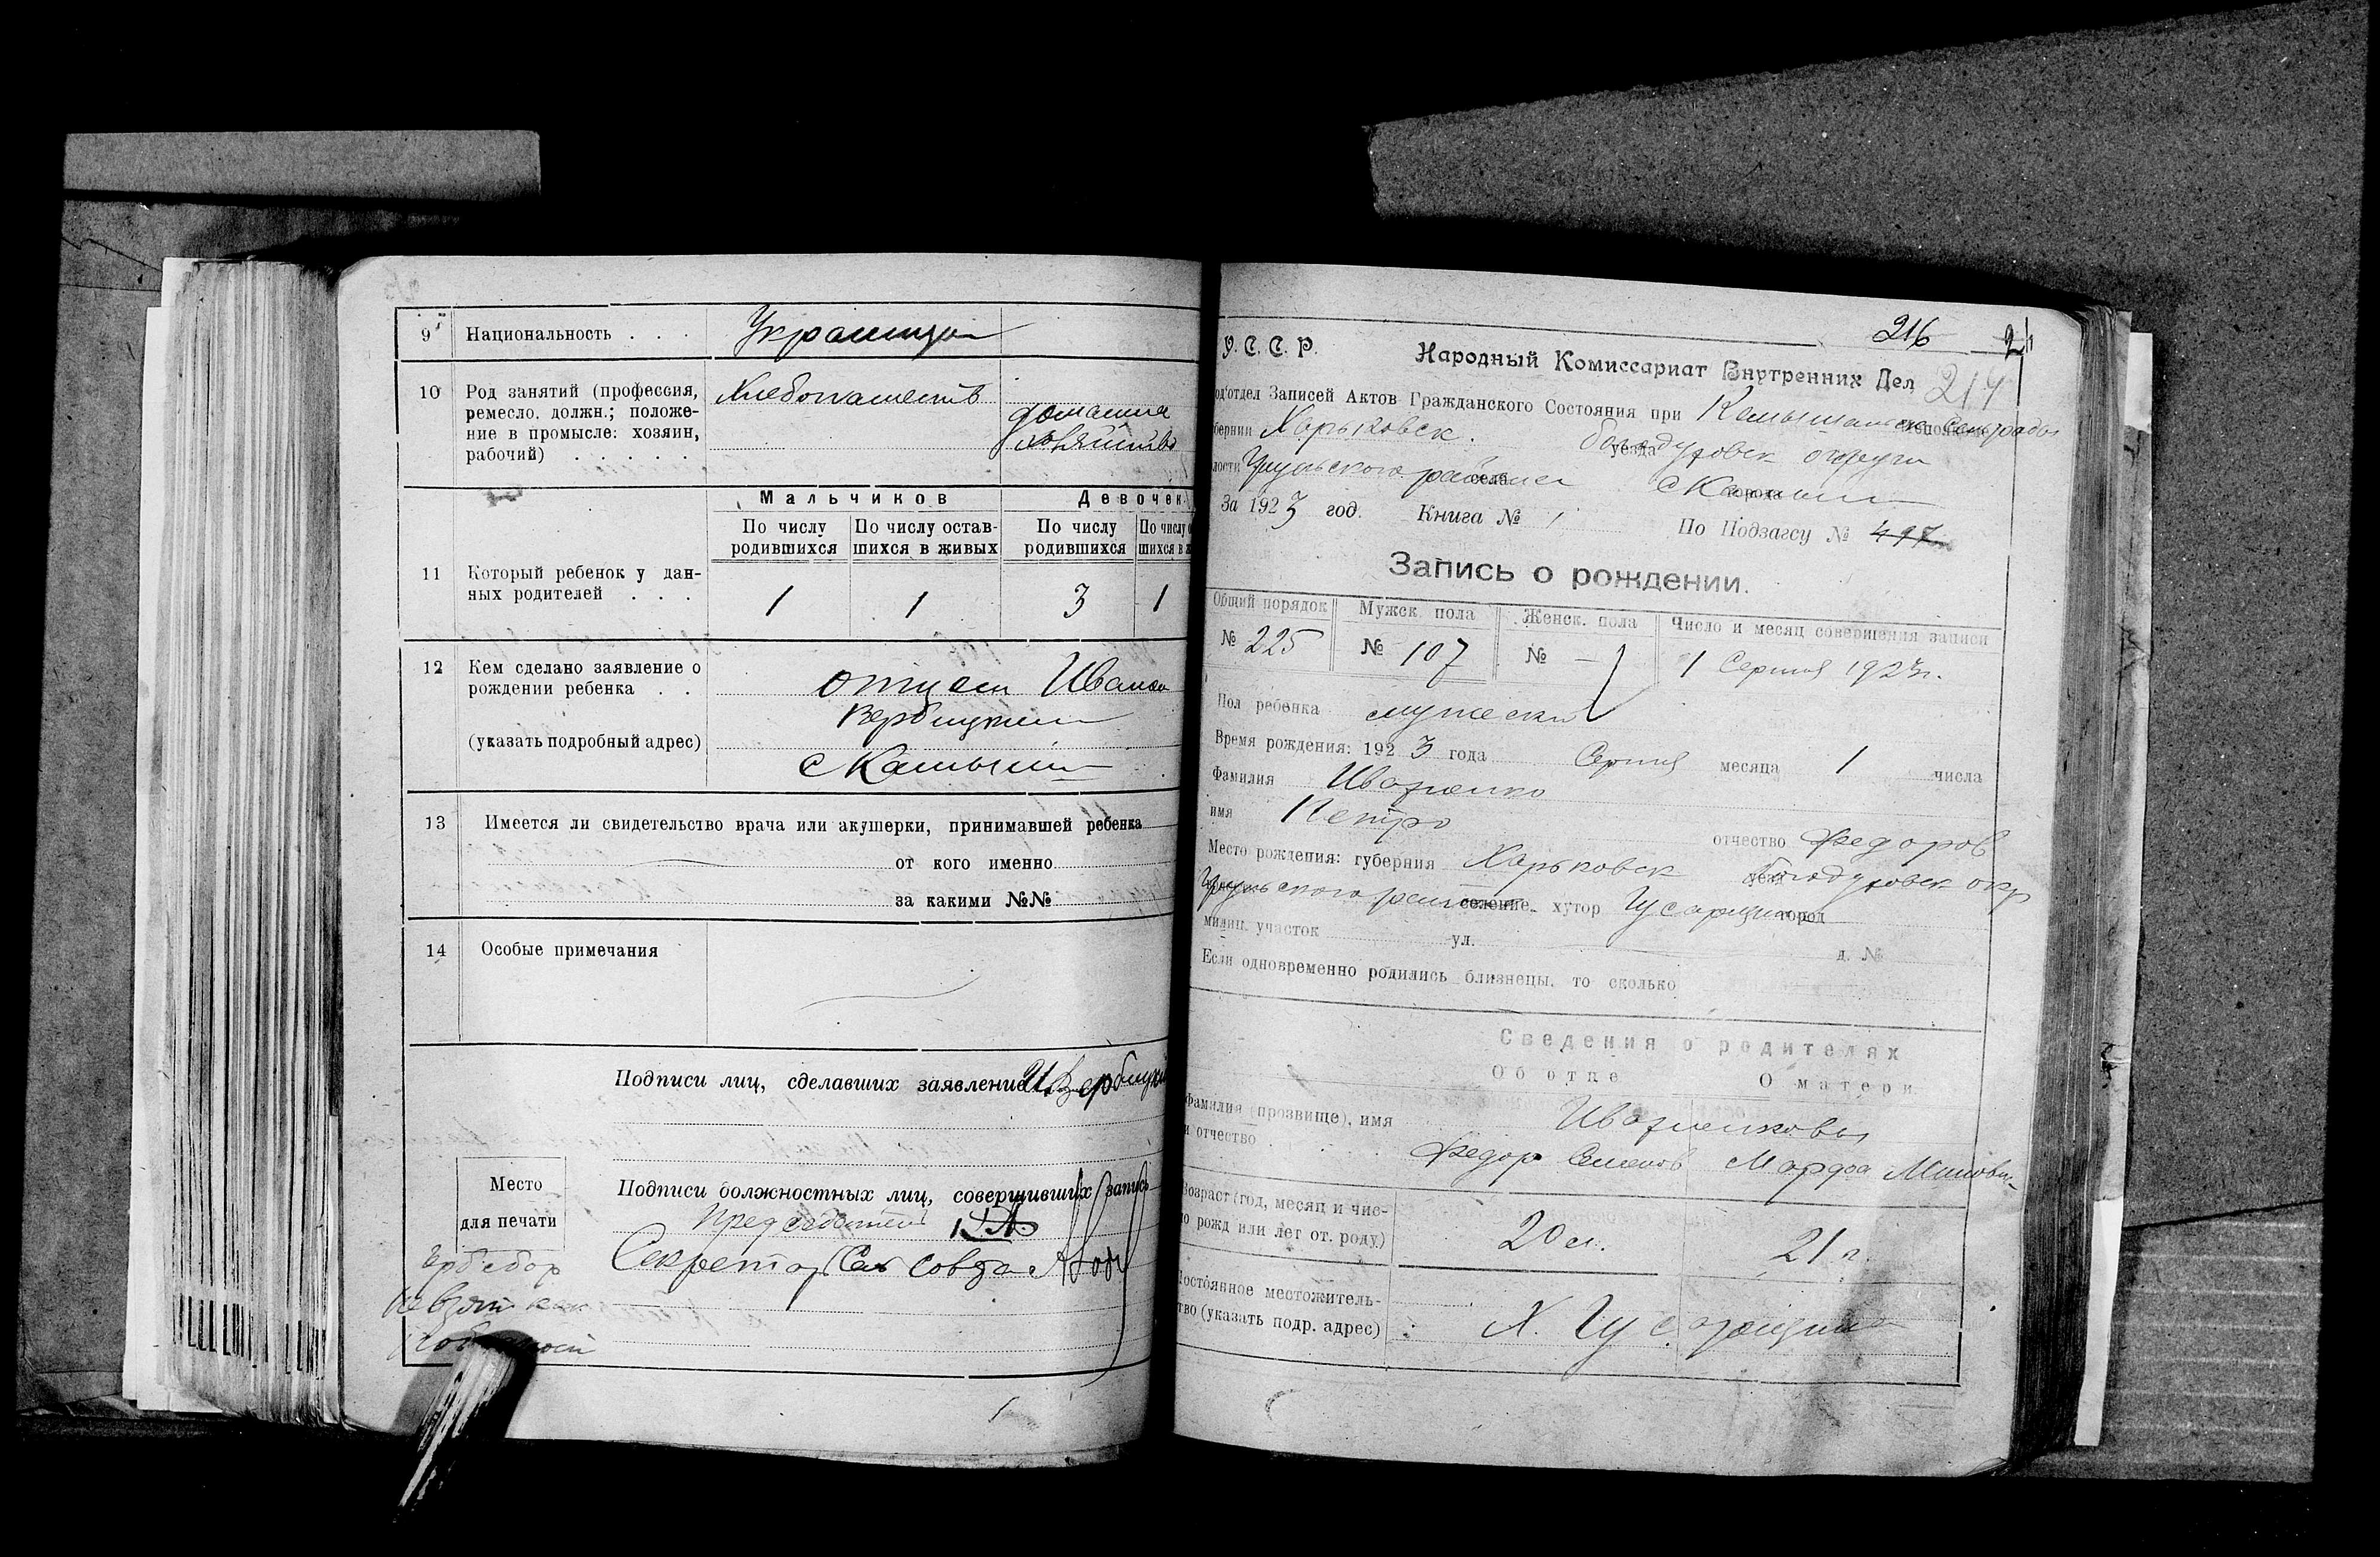 9 Национальность . . . Украинцы
10 Род занятий (профессия,
ремесло, должн.; положе-
ние в промысле: хозяин,
рабочий) . . . . .
Хлебопашеств
домашнее
хозяйство
Мальчиков Девочек
По числу родившихся По числу остав-шихся в живых По числу родившихся По числу
11 Который ребенок у дан-
ных родителей . . .
1 1 3 1
12 Кем сделано заявление о
рождении ребенка . .
(указать подробный адрес)
отцем Иваном
Вербицким
с Камыши
13 Имеется ли свидетельство врача или акушерки, принимавшей ребенка
от кого именно
за какими №№
14 Особые примечания
Подписи лиц, сделавших заявление И Вербицкий
Место
для печати
Подписи должностных лиц, совершивших запись
Председатель
Секретарь Сельсовета
216 21
214
У. С. С. Р. Народный Комиссариат Внутренних Дел
отдел Записей Актов Гражданского Состояния при Камышанск Сельради
бернии Харьковск. уезда богодуховск округи
лости района села с Камыши
За 1923 год. Книга № 1 По Подзагсу № 497
Запись о рождении.
Общий порядок Мужск. пола Женск. пола Число и месяц совершения записи
№ 225 № 107 № — 1 Серпня 1923г.
Пол ребенка мужески
Время рождения: 1923 года Серпня месяца 1 числа
Фамилия Ивахненко
имя Петро
отчество Федоров
Место рождения: губерния Харьковск уезд Богодуховск окр
района селение, хутор Гусарщина город
милиц. участок ул. д. №
Если одновременно родились близнецы, то сколько
Сведения о родителях
Об отце О матери
Фамилия (прозвище), имя
и отчество
Ивахненковы
Федор Семенов Марфа
Возраст (год, месяц и чис-
о рожд или лет от. роду.)
20 л. 21 г.
Постоянное местожитель-
тво (указать подр. адрес)
Х. Гусарщина